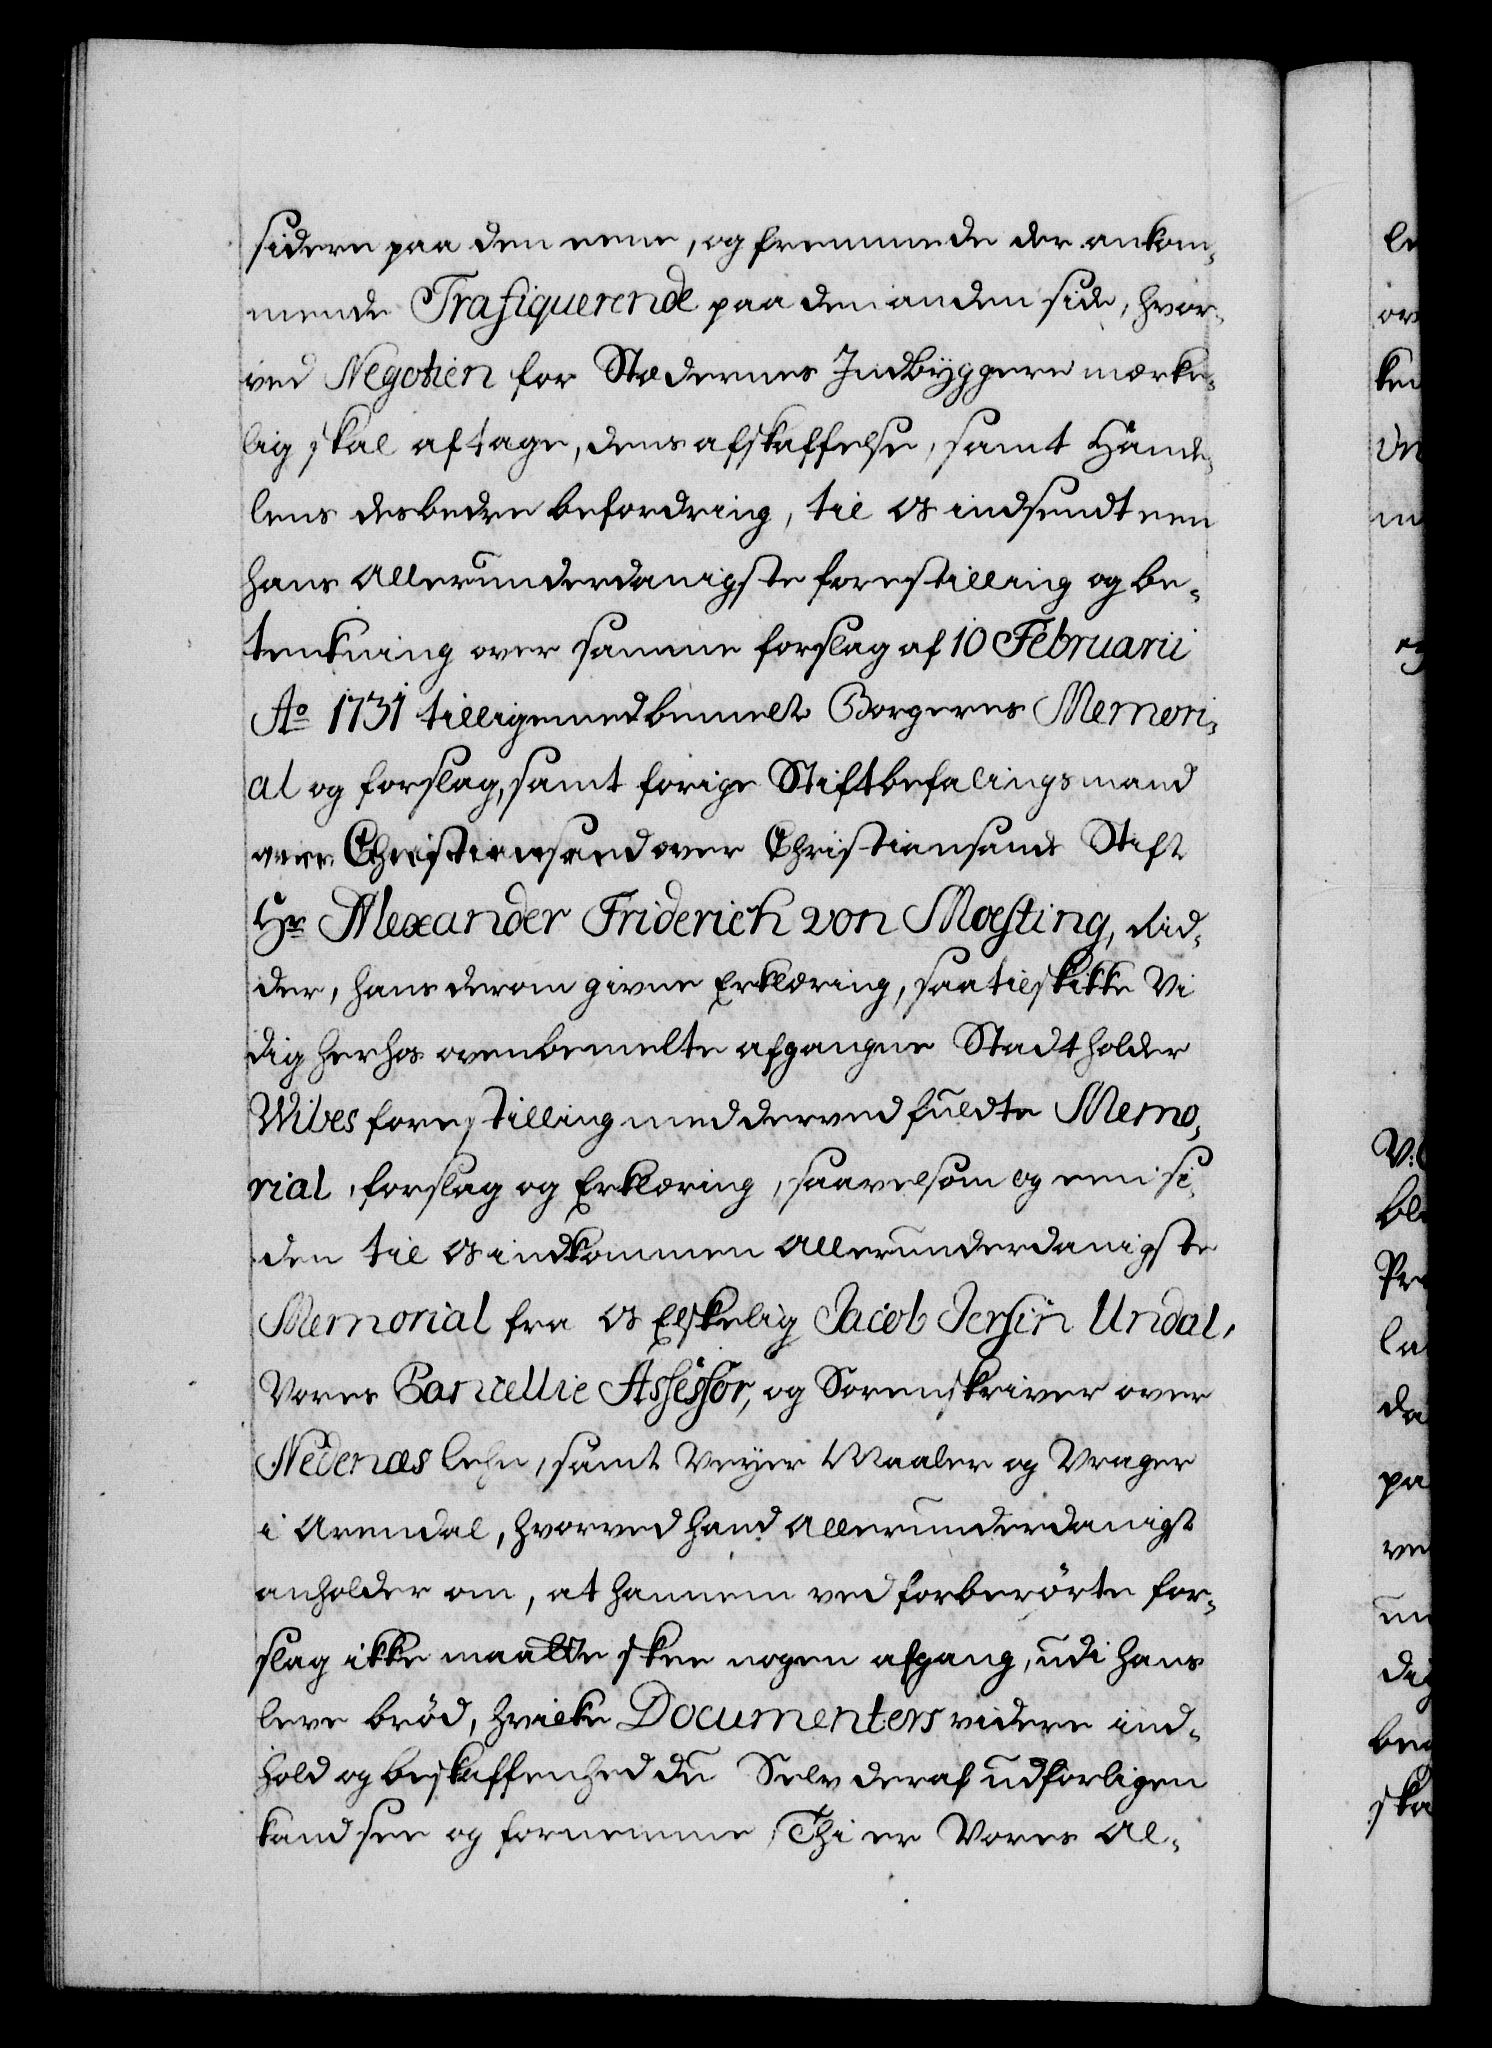 sidere paa den eene, og fremmede der ankom-
mende Trafiquerende paa den anden side, hvor-
ved Negotien for Stædernes Indbyggere mærke-
lig skal aftage, dens afskaffelse, samt Hand-
lens desbedre befordring, til os indsendt een
hans allerunderdanigste forestilling og be-
tenkning over samme forslag af 10 Februarii
Ao 1731 tilligemed bemelte Borgeres Memori-
al og forslag, samt forige Stiftbefalingsmand
over Christiansand over Christiansands Stift
Hr Alexander Friderich von Moesting, Rid-
der, hans derom givne Erklæring, saa tilskikke Vi
dig herhos ovenbemelte afgangne Stadtholder
Wibes forestilling med derved fuldte Memo-
rial, forslag og Erklæring, saavelsom og een si-
den til os indkommen allerunderdanigste
Memorial fra os Elskelig Jacob Jersin Undal,
Vores Cancellie Assessor, og Sorenskriver over
Nedenæs lehn, samt Veyer Maaler og Vrager
i Arendal, hvorved hand allerunderdanigst
anholder om, at hannem ved forberörte for-
slag ikke maatte skee nogen afgang, udi hans
leve bröd, hvilke Documenters videre ind-
hold og beskaffenhed du Selv deraf udforligen
kand see og fornemme, Thi er Vores al-